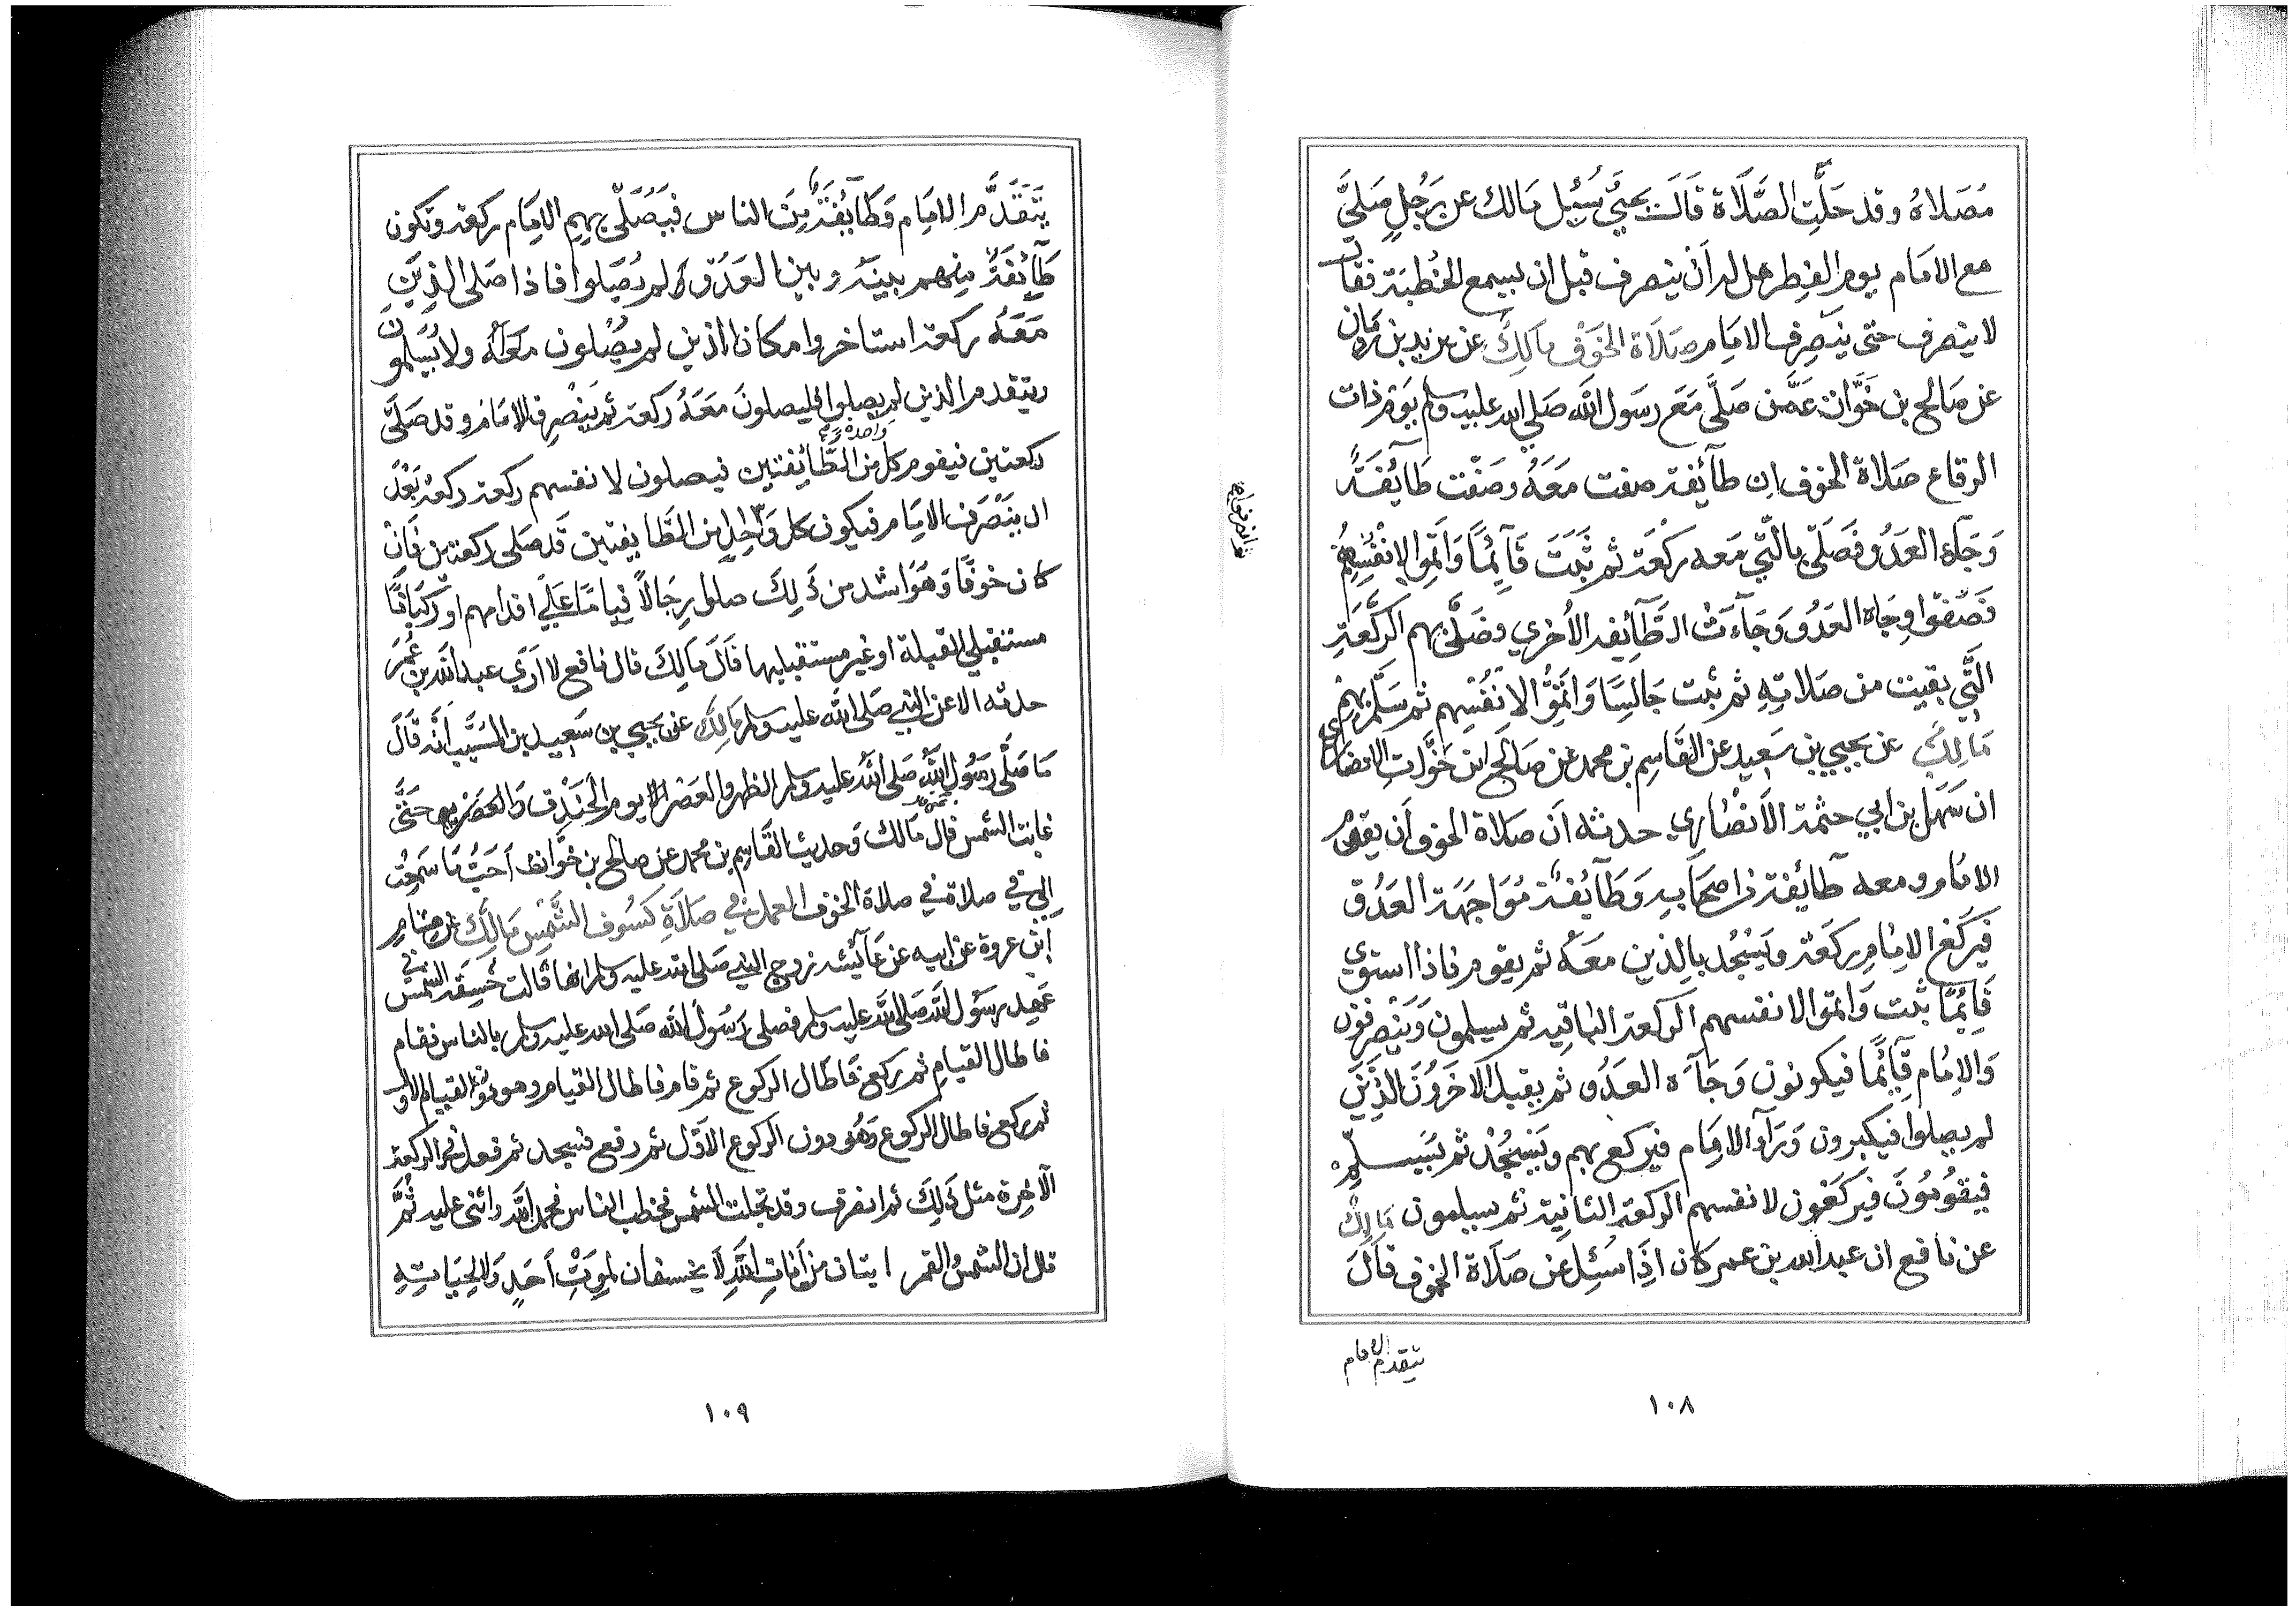 مُصَلاهُ وقد حَلَّتِ الصَّلَاة قَالَ يحيَى سُئِيل مَالك عن رَجُلٍ صَلَّيَ
مع الامَام يوم الفِطرِ هل له اَن ينصرف قبل ان يسمع الخُطبَة فقال
لا ينصرف حتى يَنصَرِف الامَام صَلَاة الخَوْفِ مَالِكُ عن يزيد بن رُومان
عن صَالح بن خَوَّات عَمَّن صَلَّى مَعَ رسَول الله صَلي الله عليه وسلم يَوم ذات
الرقاع صَلاة الخوف ان طآئِفة صفت مَعَهُ وصَفّت طَائِفَةً
وَجَاهَ العَدُو فَصَلَّى بالّتي مَعه ركْعَة ثم ثَبَتَ قَآئِمًا وَاَتَمّوا لانْفُسِهِمْ
فَصَفّوا وِجَاة العَدُوِ وَجَآءَتْ الطَّآئِفه الأُخرَي وصَلَّى بهم الركْعَة
الَّتِي بَقيت من صَلاتِهِ ثم ثبت جَالِسًا وَاَتمُّوا لانْفُسِهِم ثم سَلَّمَ بِهِم
مَالِكُ عن يحيي بن سَعِيدٍ عن القَاسِم بن محمد عن صَالح ابن خَوَّات الانصَاري
ان سَهَل بن ابي حثمة الأَنصَاري حدثه اَن صَلاة الخوف اَن يقوم
الامَام ومعه طآئِفة من اصحَابِهِ وَطَآئِفَةٌ مُوَاجَهَة العَدُوّ
فَيركَعَ الامَام ركعَة وَيَسْجُد بالذين مَعَهُ ثم يقوم فاذا استوي
قَائِمًا ثبت وَاتموا لانفسهم الركعَة الباقيه ثم يسلمون وَيَنْصرِفون
وَالامَام قَآئِمًا فيكونون وَجَآه العَدُو ثم يقبل الاَخَرُونَ الذَّينَ
لم يصلوا فيكبرون وَرَآء الامَام فيركع بهم وَيَسْجُدْ ثم يُسَلِّمْ
فَيقُومُونَ فَيَركَعُون لانفسهم الركعَة الثانِيَة ثم يسلمون مَالِكُ
عن نافع ان عبد الله بن عمر كان اذَا سُئِل عن صَلَاة الخوف قَالَ
يتقدم الامام
١٠٨
يَتَقَدَّم الامَام وَطَآئِفَةٌ مِنَ الناس فَيُصَلّي بِهِم الامَام ركعة وتكون
طَآئِفَةٌ منهم بينَهُ وبين العَدُوّ لم يُصَلوا فاذا صَلى الذِينَ
مَعَهُ ركعة استاخروا مكان الذين لم يُصَلون مَعَهُ ولا يُسَلمون
ويتقدم الذين لم يصلوا فليصلونَ مَعَهُ ركعة ثم يَنْصرِف الامَامُ وقد صَلَّى
ركعتين فيقوم كل واحدة من الطَّائِفتين فيصلون لانفسهم ركعة ركعة بَعْدَ
ان يَنْصَرف الامَام فيكون كل وَاحِدٍ من الطَّائِفتين قَد صَلى ركعتين فَاِن
كان خوفًا وَهُوَ اشد من ذَلِكَ صلوا رِجَالاً قيامًا عَلَي اقدامهم او رُكْبَانًا
مستقبلي القبلة او غير مستقبليها قَالَ مَالِكَ قال نافع لا اَرَي عبد الله بن عُمَرَ
حدثه الا عن النبي صَلى الله عليه وسلم مَالِكُ عن يحيي بن سَعِيد بن المسَيَّبِ اَنَّه قَالَ
مَا صَلَّى رسُول الله صَلى الله عليه وسلم الظهر والعَصْر الا يوم الخَندَق حَتَّى
غابت الشمس قال مَالك وَحديث القَاسِم بن محمد عن صالح بن خوَّات اَحَبُّ مَا سَمِعْت
اِلَيَّ في صلاة الخوف العمل في صَلاَةِ كسُوف الشَّمْسِ مَالِكُ عن هشام
ابن عروة عن ابيه عن عَائشه زوج النبي صَلى الله عليه وسلم انها قالت خَسَفَت الشمس في
عَهد رسُول الله صَلى الله عليه وسلم فصلى رَسُول الله صَلى الله عليه وسلم بالناس فقام
فاطال القيام ثم ركع فَاطَال الركوع ثم قام فاطال القيام وهو دُونَ القيام الاول
ثم ركع فاطال الركوع وَهُو دون الركوع الاَوّل ثم رفع فسجد ثم فعل في الركعة
الآخِرة مثل ذَلِكَ ثم انصرف وقد تجلت الشمس فخطب الناس فحمد الله واثنى عليه ثُمَّ
قال ان الشمسُ والقمر ايتان من اَيَاتِ الله لَا يخسفان لموتِ اَحَدٍ وَلا لِحَيَاتِهِ
١٠٩